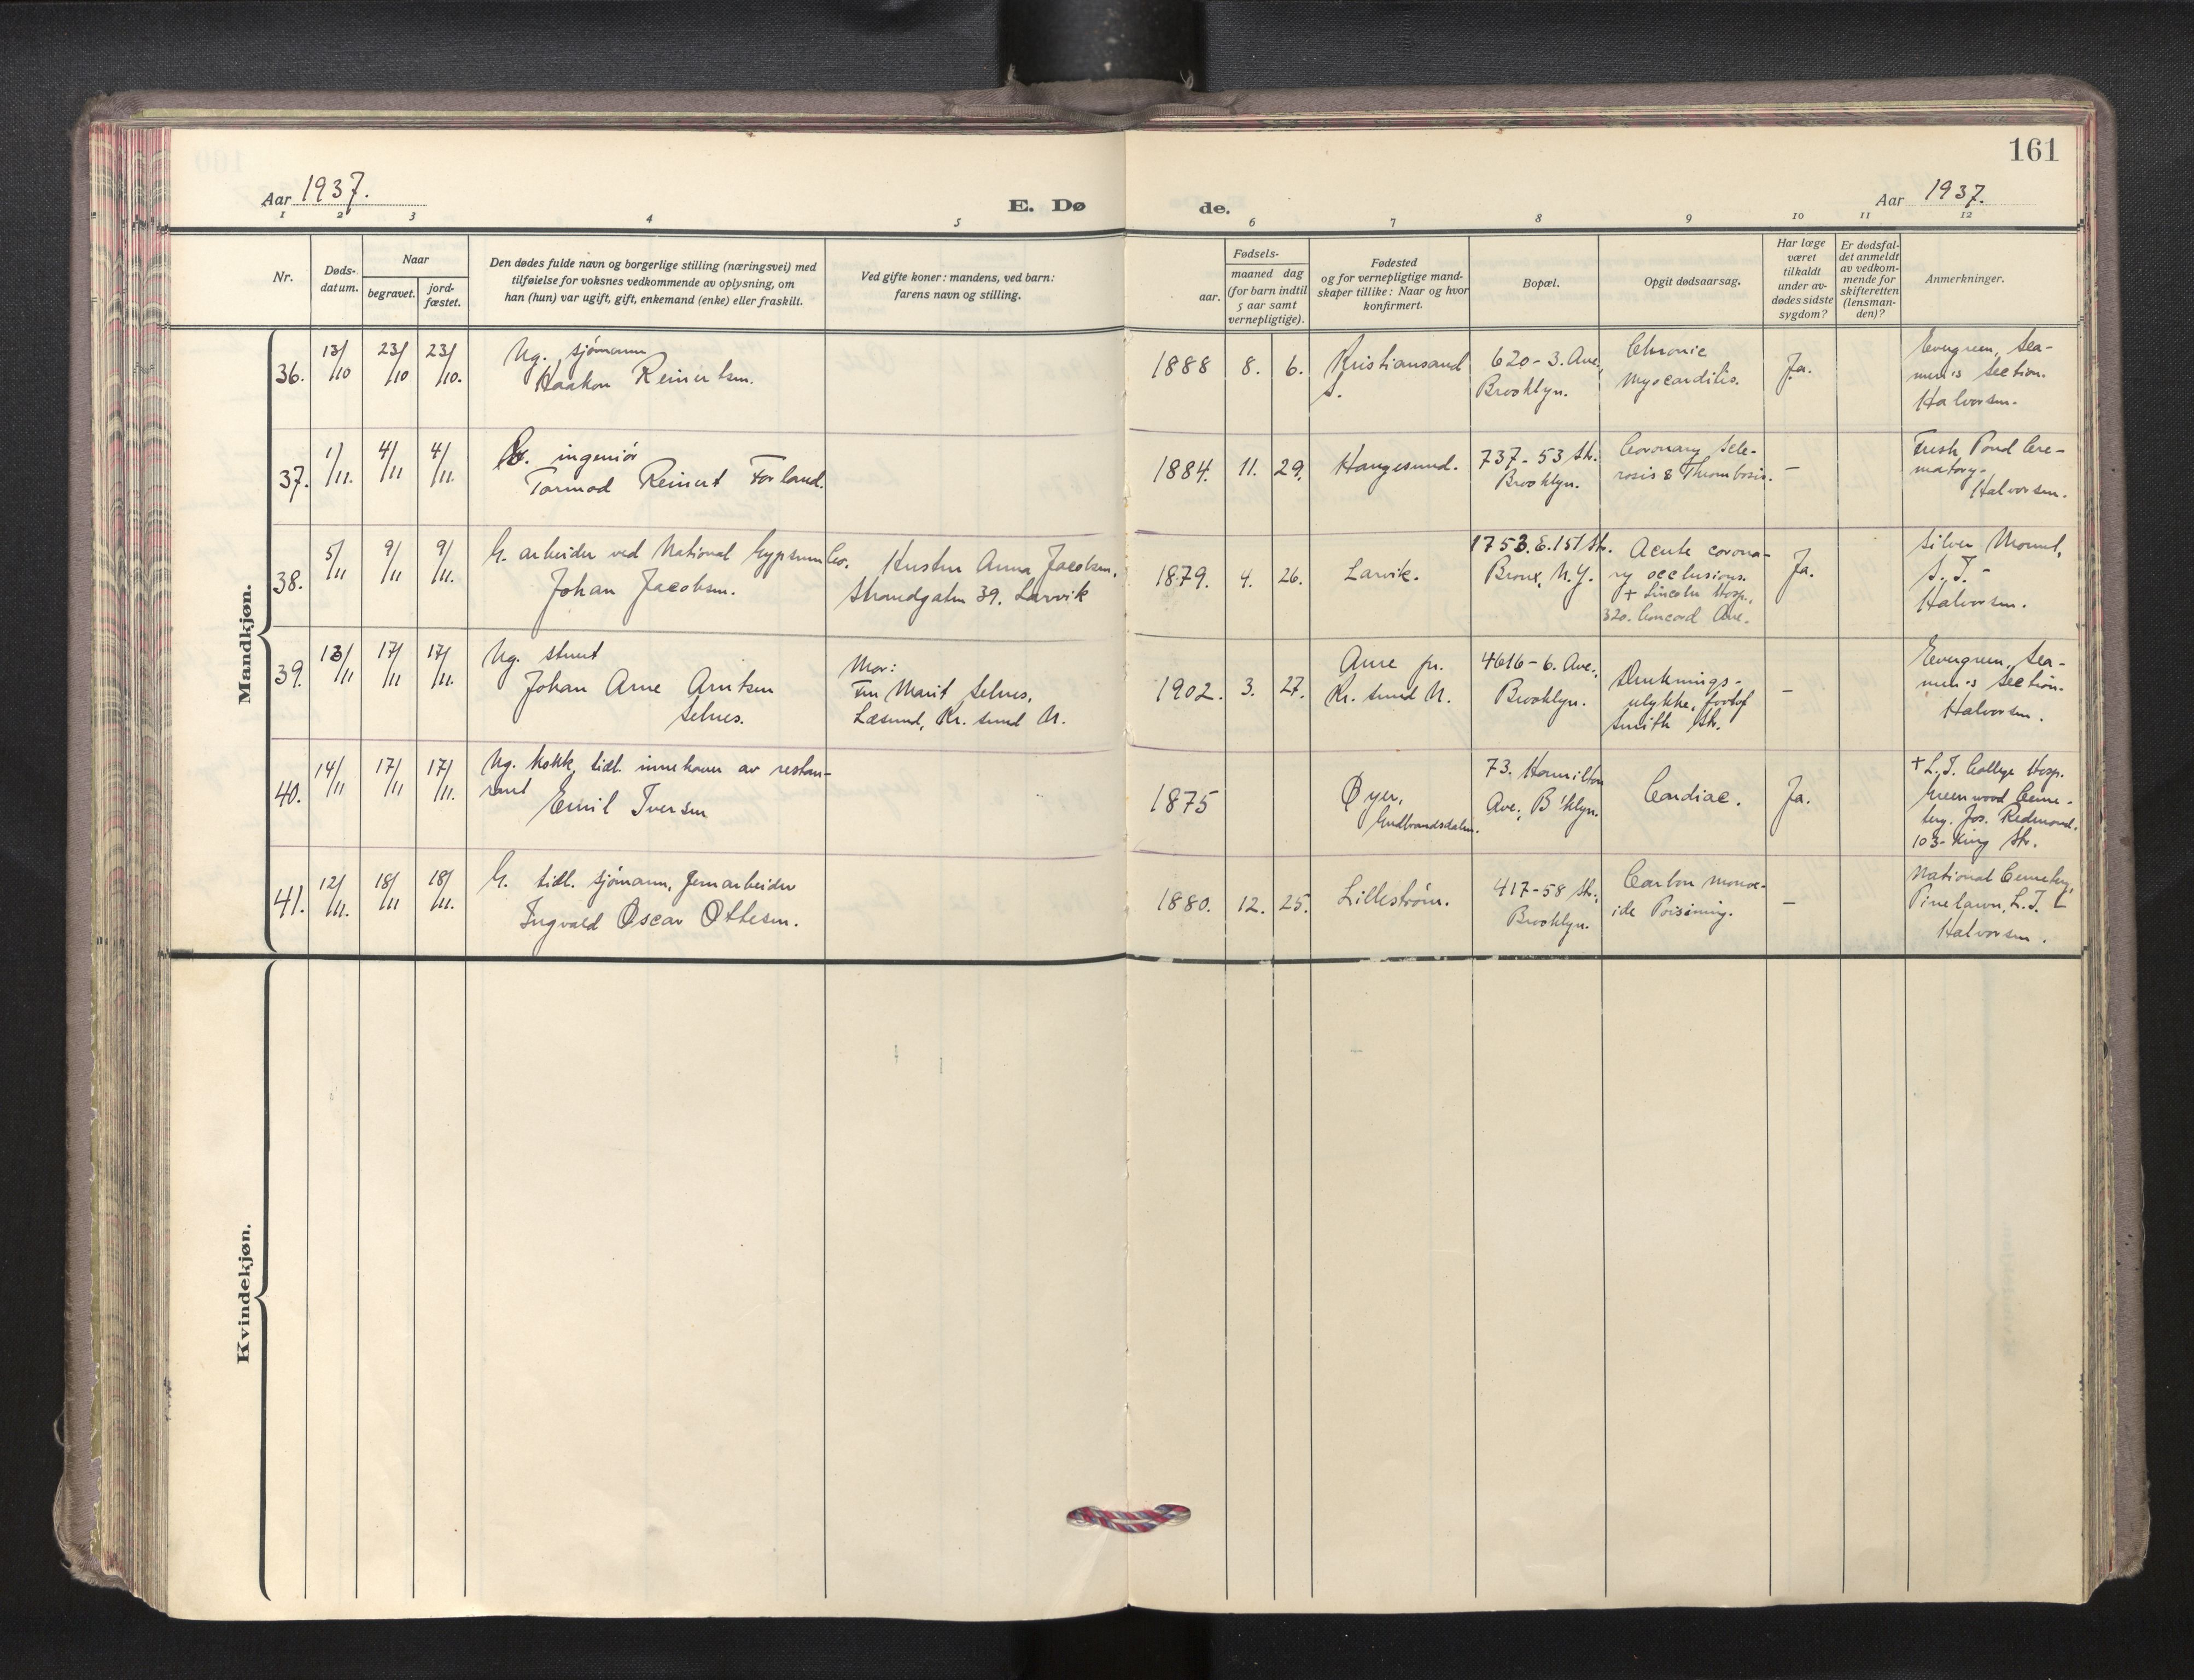 161
Aar 1937.
E. Dø de.
Aar 1937.
1 2 3 4 5 6 7 8 9 10 11 12
Nr.
Døds-
datum.
Naar
begravet.
jord-
fæstet.
Den dødes fulde navn og borgerlige stilling (næringsvei) med
tilføielse for voksnes vedkommende av oplysning, om
han (hun) var ugift, gift, enkemand (enke) eller fraskilt.
Ved gifte koner: mandens, ved barn:
farens navn og stilling.
Fødsels-
aar.
maaned dag
(for barn indtil
5 aar samt
vernepligtige).
Fødested
og for vernepligtige mand-
skaper tillike: Naar og hvor
konfirmert.
Bopæl.
Opgit dødsaarsag.
Har læge
været
tilkaldt
under av-
dødes sidste
sygdom?
Er dødsfal-
det anmeldt
av vedkom-
mende for
skifteretten
(lensman-
den)?
Anmerkninger.
Mandkjøn.
36.
13/10
23/10
23/10.
Ug. sjömann
Haakon Reinertsen.
1888
8.
6.
Kristiansand
S.
620-3. Ave.,
Brooklyn.
Chronic
Myocarditis.
Ja.
Evergreen, Sea-
men's Section.
Halvorsen.
37.
1/11.
4/11
4/11.
ingeniör
Tormod Reinert Forland.
1884.
11.
29.
Haugesund.
737-53 Str.
Brooklyn.
Coronary Scle-
rosis & Thrombosis.
–
Fresh Pond Cre-
matory.
Halvorsen.
38.
5/11
9/11
9/11.
G. arbeider ved National Gypsum Co.
Johan Jacobsen.
Hustru Anna Jacobsen,
Strandgaten 39. Larvik
1879.
4.
26.
Larvik.
1753. E. 151 Str.
Bronx, N.Y.
Acute corona-
ry occlusions.
+ Lincoln Hosp.,
320. Concord Ave.
Ja.
Silver Mount,
S. I. -
Halvorsen.
39.
13/11
17/11
17/11.
Ug. stuert
Johan Arne Arntsen
Selnes.
Mor:
Fru Marit Selnes,
Læsund, Kr. sund N.
1902.
3.
27.
Aure pr.
Kr. sund N.
4616-6. Ave.,
Brooklyn.
Druknings-
ulykke, foot of
Smith Str.
–
Evergreen, Sea-
men's Section.
Halvorsen.
40.
14/11
17/11
17/11.
Ug. kokk, tidl. innehaver av restau-
rant
Emil Iversen
1875
Øyer,
Gudbrandsdalen.
73. Hamilton
Ave., B'klyn.
Cardiac.
Ja.
+ L. I. College Hosp.
Greenwood Ceme-
tery. Jos. Redmond,
103- King Str.
41.
12/11.
18/11
18/11.
G. tidl. sjömann, Jernarbeider
Ingvald Oscar Ottesen.
1880.
12.
25.
Lilleström.
417-58 Str.,
Brooklyn.
Carbon monox-
ide Poisining.
–
National Cemetery,
Pinelawn, L. I.
Halvorsen.
Kvindekjøn.